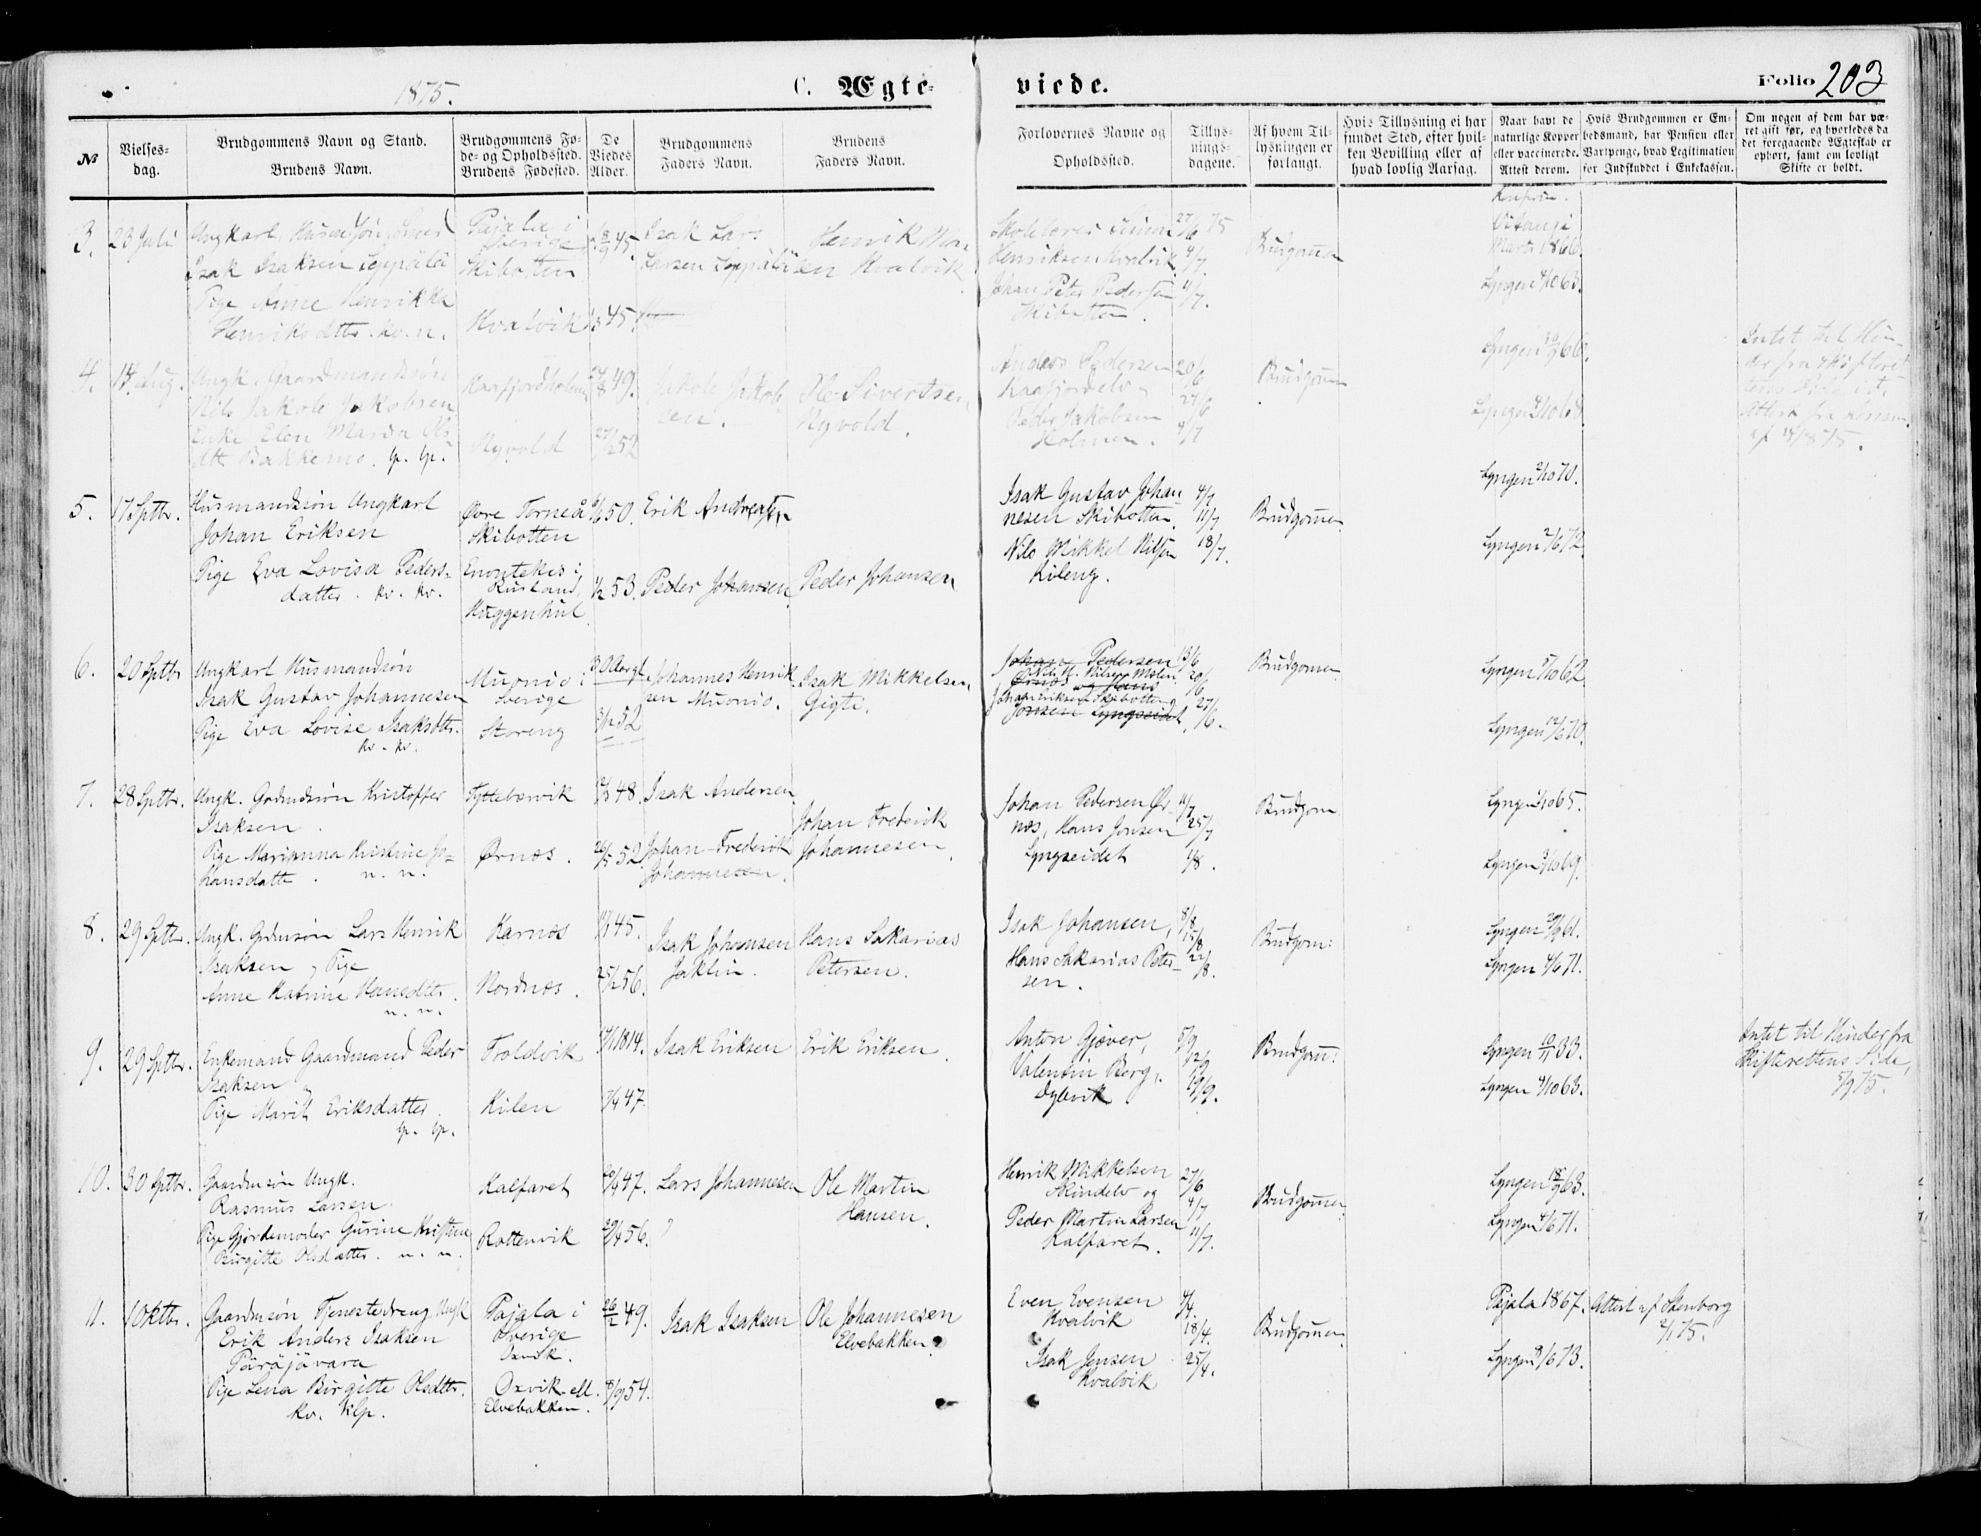 1875.
C. Ægte-
viede.
Folio 203
№
Vielses-
dag.
Brudgommens Navn og Stand.
Brudens Navn.
Brudgommens Fø-
de- og Opholdssted.
Brudens Fødested.
De
Viedes
Alder.
Brudgommens
Faders Navn.
Brudens
Faders Navn.
Forlovernes Navne og
Opholdssted.
Tillys-
nings-
dagene.
Af hvem Til-
lysningen er
forlangt.
Hvis Tillysning ei har
fundet Sted, efter hvil-
ken Bevilling eller af
hvad lovlig Aarsag.
Naar havt de
naturlige Kopper
eller vaccinerede.
Attest derom.
Hvis Brudgommen er Em-
bedsmand, har Pension eller
Vartpenge, hvad Legitimation
for Indskuddet i Enkekassen.
Om nogen af dem har væ-
ret gift før, og hvorledes da
det foregaaende Ægteskab er
ophørt, samt om lovligt
Skifte er holdt.
3.
23 Juli
Ungkarl
Isak Isaksen Leppälä
Pige Anne Henrikka
Henriksdttr. kv. n.
Pajala i
Sverige
Skibotten
Kvalvik
45.
45.
Isak Lar-
Larsen Leppälä
Henrik
sen Kvalvik
Skolelærer Simon
Henriksen Kvalvik
Johan Peter Pedersen
Skibotten.
27/6 75
4/7.
4/7.
Brudgommen
Vitangi
Marts 1866.
Lyngen 4/10 63.
4.
14 Aug.
Ungk. Gaardmandssøn
Nils Jakob Jakobsen
Enke Elen Maria Ols-
dttr Bakkemo. lp. lp.
Kaafjordholmen
Nyvold
24/8 49.
52
Jakob Jakob-
sen.
Ole Sivertsen
Nyvold.
Anders Pedersen
Kaafjordelv
Peder Jakobsen
Holmen.
20/6
27/6
4/7
Brudgommen
Lyngen 66.
Lyngen 68.
Intet til Hin-
der fra Skifteret-
tens Side
Attest fra
af 75.
5.
17 Sptbr.
Husmandssøn Ungkarl
Johan Eriksen
Pige Eva Lovisa Peders-
datter. kv. kv.
Øvre Torneå
Skibotten
Enontekis i
Rusland,
Kuggenhul
50.
53.
Erik Andreasen
Peder Johansen
Peder Johansen
Isak Gustav Johan-
nesen Skibotten.
Nils Mikkel Nilsen
Kileng.
4/7
11/7
18/7
Brudgommen
Lyngen 2/10 70.
Lyngen 2/6 72.
6.
20 Sptbr
Ungkarl Husmandssøn
Isak Gustav Johannesen
Pige Eva Lovise Isaksdttr.
kv. kv.
Muonio i
Sverige
Storeng
30 Aar gl.
52
Johannes Henrik-
sen Muonio.
Isak Mikkelsen
Gigte.
Johan Pedersen
Ørnes og Hans
Johan Eriksen Skibotten
Jonsen Lyngseidet
13/6
20/6
27/6.
Brudgommen
Lyngen 62
Lyngen 12/6 70.
7.
28 Sptbr.
Ungk. Grdmdssøn Kristoffer
Isaksen.
Pige Marianna Kristine Jo-
hansdatt. n. n.
Tyttebærvik
Ørnæs.
48.
52
Isak Andersen
Johan Frederik
Johannesen.
Johan Frederik
Johannesen.
Johan Pedersen Ør-
næs, Hans Jonsen
Lyngseidet
11/7
25/7
1/8.
Brudgom
Lyngen 65.
Lyngen 3/10 69.
8.
29 Sptbr.
Ungk. Grdmssøn Lars Henrik
Isaksen, Pige
Anne Katrine Hansdttr.
n. n.
Karnæs
Nordnæs.
45.
56.
Isak Johansen
Jaklin.
Hans Sakarias
Petersen.
Isak Johansen,
Hans Sakarias Peter-
sen.
8/8
15/8
22/8.
Brudgom:
Lyngen 61.
Lyngen 4/6 71.
9.
29 Sptbr.
Enkemand Gaardmand Peder
Isaksen
Pige Marit Eriksdatter.
lp. lp.
Troldvik
Kilen
1814.
47.
Isak Eriksen
Erik Eriksen.
Anton Gjæver,
Valentin Berg,
Dybvik
5/9
12/9
19/9.
Brudgom:
Lyngen 10/11 33.
Lyngen 4/10 63.
Intet til Hinder fra
Skifterettens Side,
5/9 75.
10.
30 Sptbr.
Gaardmssøn Ungk.
Rasmus Larsen.
Pige Gjordemoder Gurine Kristine
Birgitte Olsdatter. n. n.
Kalfaret
Rottenvik
47.
56.
Lars Johannesen
Ole Martin
Hansen.
Henrik Mikkelsen
Skindelv og
Peder Martin Larsen
Kalfaret.
27/6
4/7
11/7.
Brudgommen
Lyngen 63.
Lyngen 4/6 71.
11.
1 Oktbr.
Gaardmssøn Tjenestedreng Ungk
Erik Anders Isaksen
Päräjävara
Pige Lena Birgitte Olsdttr.
kv. klp.
Pajala i
Sverige
Oxvik.
Oxvik ell.
Elvebakken.
26/2 49.
54.
Isak Isaksen
Ole Johannesen
Elvebakken
Even Evensen
Kvalvik
Isak Jensen
Kvalvik
4/4.
18/4.
25/4.
Brudgommen
Pajala 1867.
Lyngen 73.
Attest af Stenborg
75.